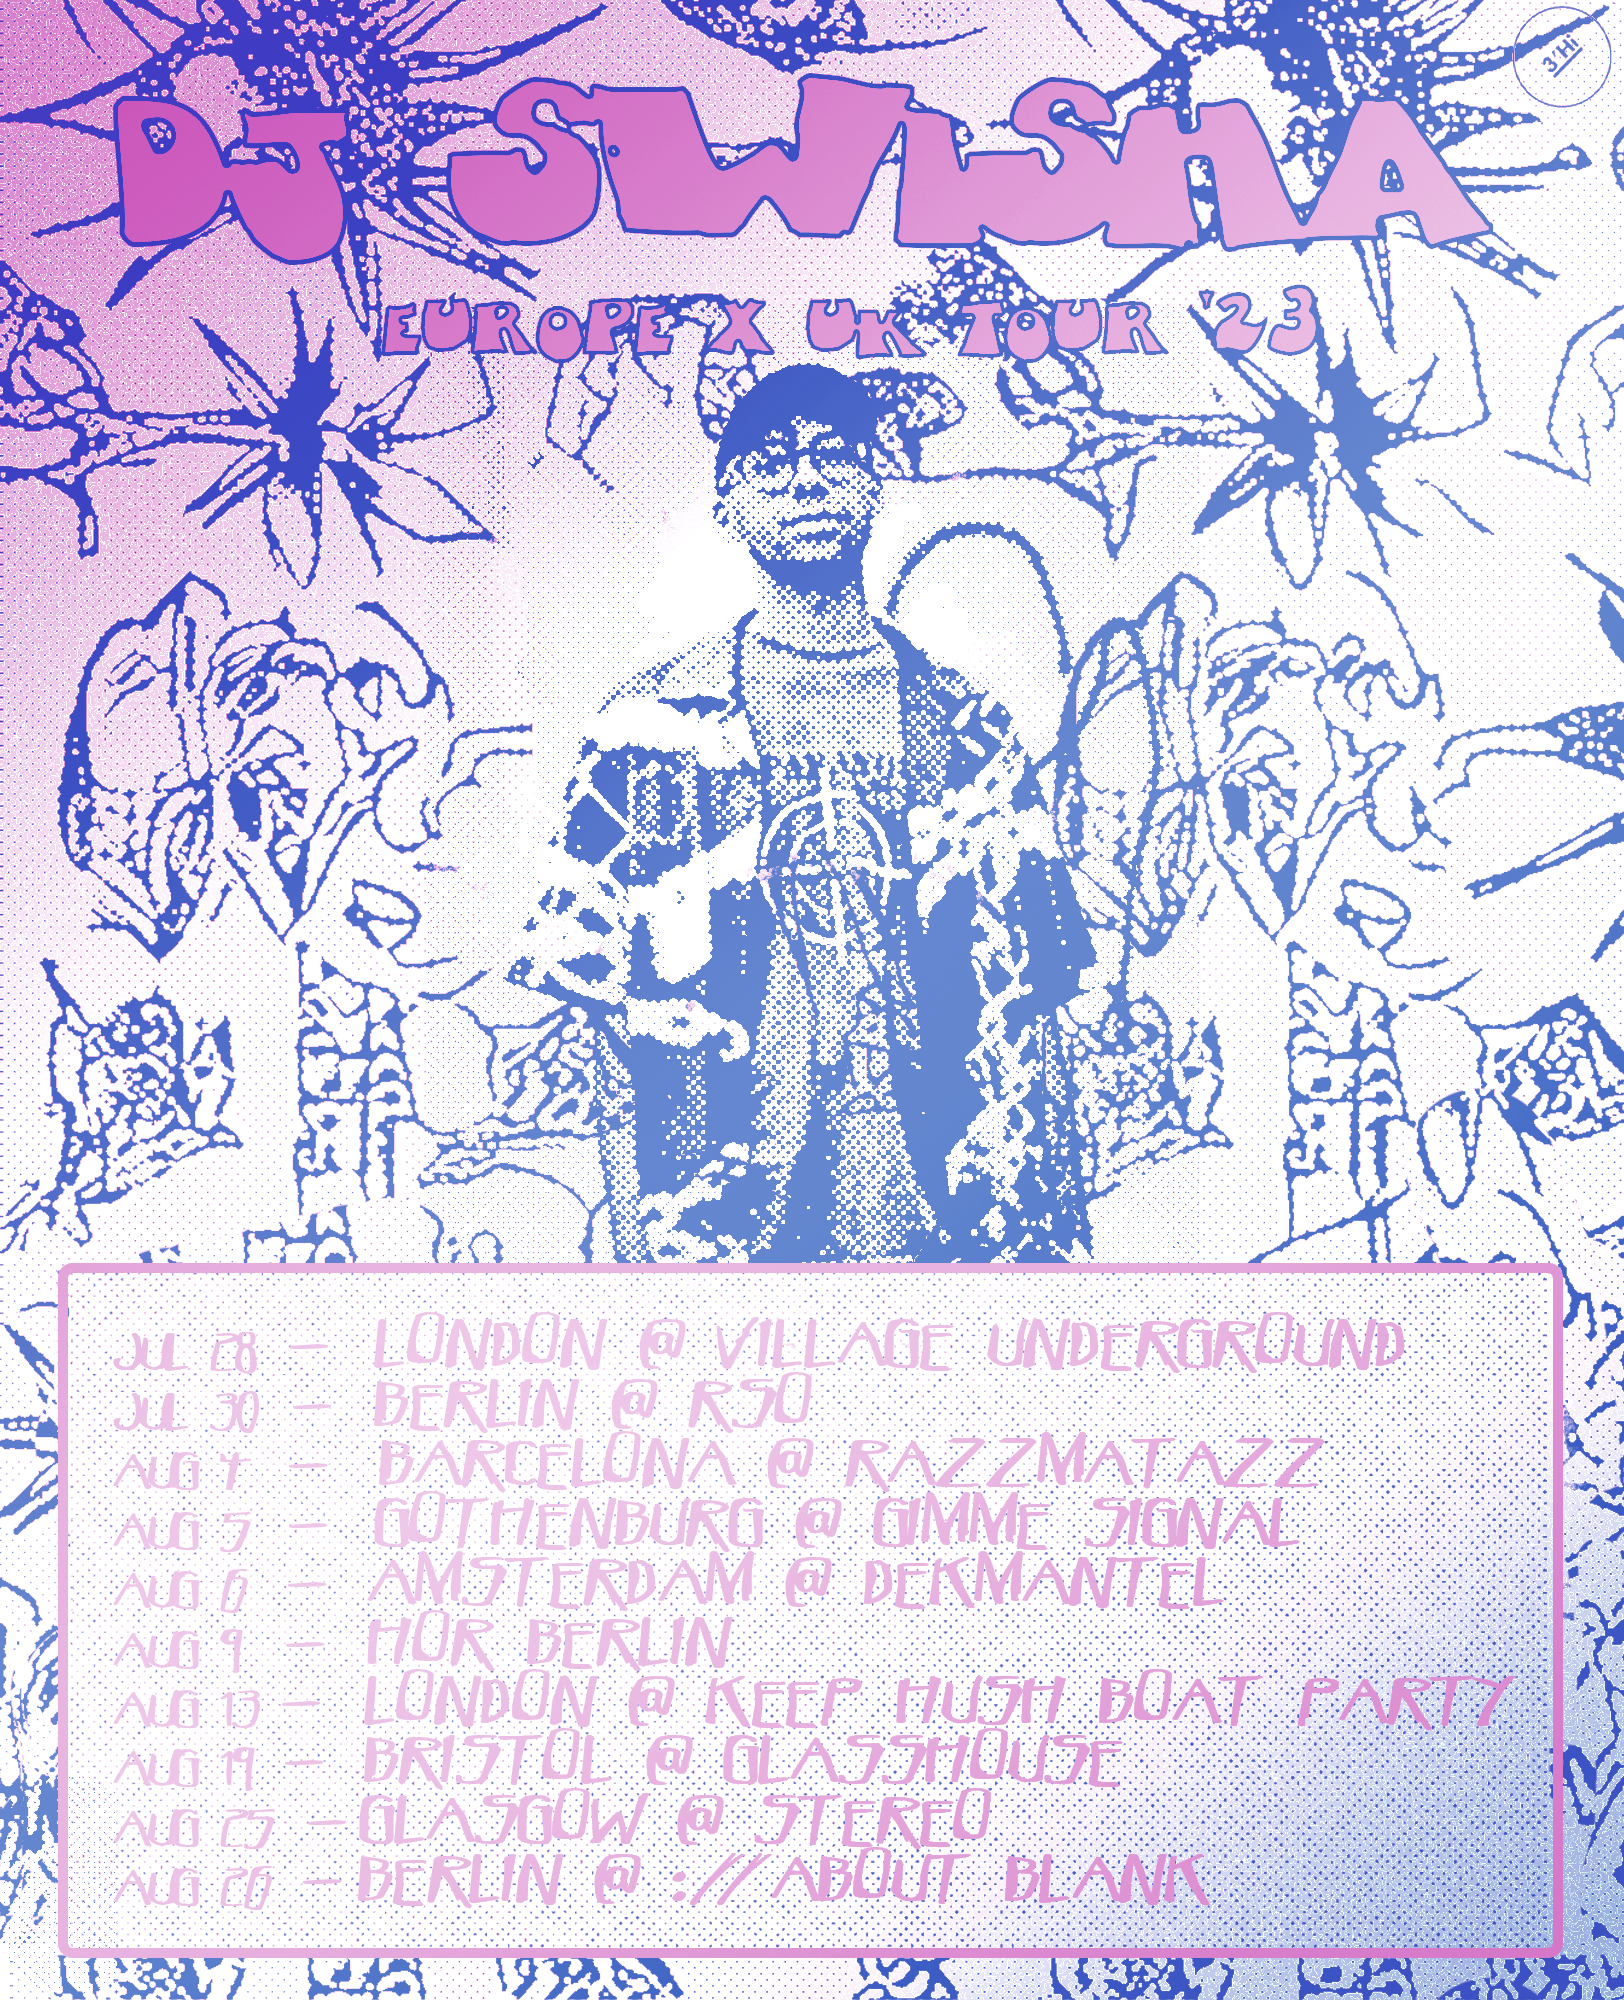 3'Hi
DJ SWISHA
EUROPE X UK TOUR '23
JUL 28 — LONDON @ VILLAGE UNDERGROUND
JUL 30 — BERLIN @ RSO
AUG 4 — BARCELONA @ RAZZMATAZZ
AUG 5 — GOTHENBURG @ GIMME SIGNAL
AUG 6 — AMSTERDAM @ DEKMANTEL
AUG 9 — HÖR BERLIN
AUG 13 — LONDON @ KEEP HUSH BOAT PARTY
AUG 19 — BRISTOL @ GLASSHOUSE
AUG 25 — GLASGOW @ STEREO
AUG 26 — BERLIN @ ://ABOUT BLANK